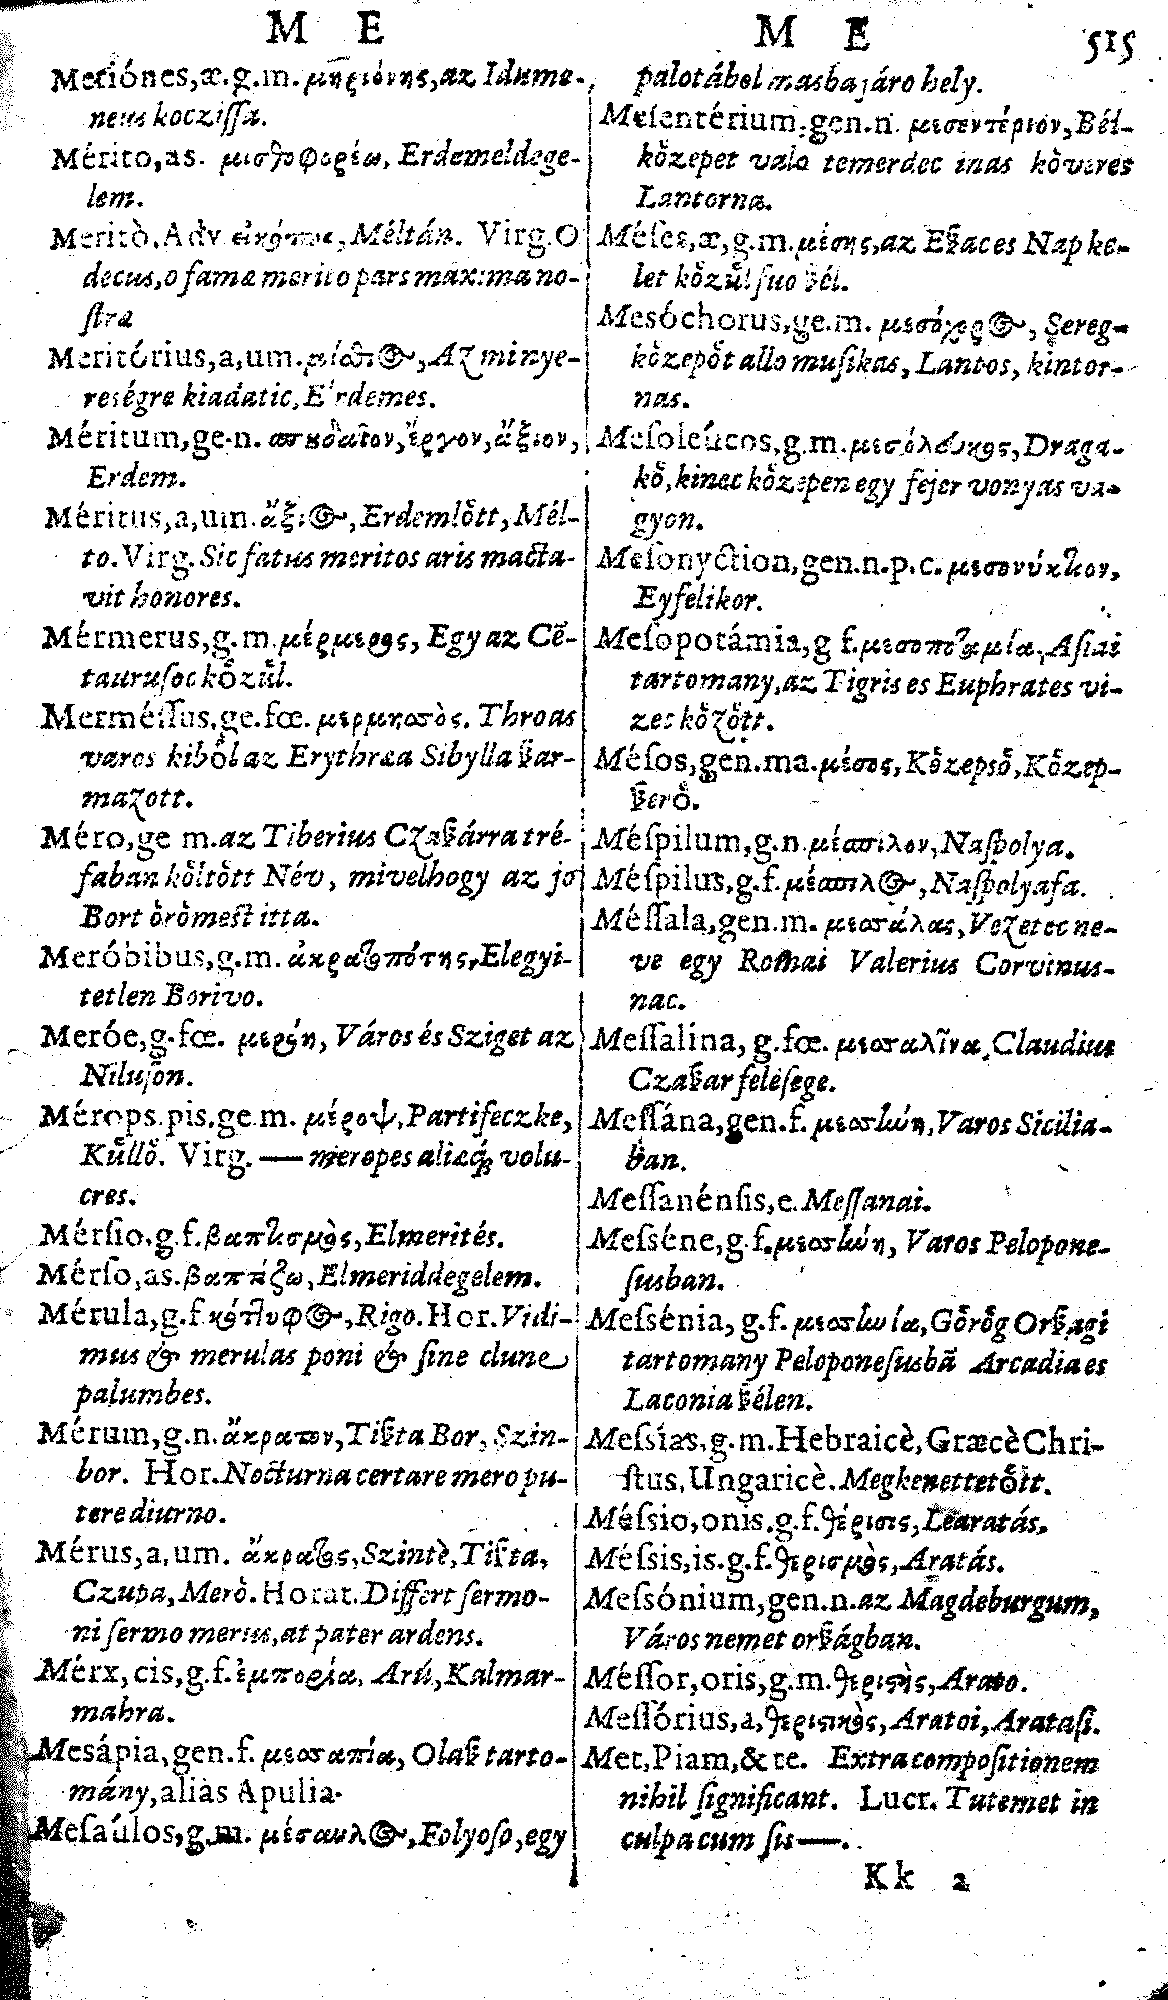 M E
Meriónes,æ.g.m. μηριόνης,az Idume-
neus kocziſſa.
Mérito,as. μισθοφορέω, Erdemeldege-
lem.
Meritò.Adv εἰκότως, Méltán. Virg.O
decus,o famæ merito pars maxima no-
ſtræ
Meritórius,a,um. Az minye-
reségre kiadatic, Erdemes.
Méritum,ge.n. ἔργον, ἄξιον,
Erdem.
Méritus,a,um. ἄξιος, Erdemlőtt, Mél-
to. Virg. Sic fatus meritos aris macta-
vit honores.
Mérmerus,g.m. μέρμερος, Egy az Cē-
taurusoc kőzűl.
Merméſſus,ge.fœ. μερμησσὸς. Throas
varos kibőlaz Erythræa Sibylla ßar-
mazott.
Méro,ge m. az Tiberius Czaßárra tré-
faban kőltőtt Név, mivelhogy az jo
Bort őrőmest itta.
Meróbibus,g.m. ἀκρατοπότης, Elegyi-
tetlen Borivo.
Meróe,g.fœ. μερόη, Város és Sziget az
Nilusőn.
Mérops.pis,ge.m. μέροψ, Partifeczke,
Kűllő. Virg. — meropes aliæq; volu-
cres.
Mérſio.g.f. βαπτισμὸς, Elmerités.
Mérſo,as. βαπτίζω, Elmeriddegelem.
Mérula,g.f κότλυφος, Rigo. Hor. Vidi-
mus & merulas poni & ſine clune
palumbes.
Mérum,g.n. ἄκρατον, Tißta Bor, Szin-
bor. Hor. Nocturna certare mero pu-
tere diurno.
Mérus,a,um. ἄκρατος, Szintè, Tißta,
Czupa, Merő. Horat. Differt ſermo-
ni ſermo merus, at pater ardens.
Mérx, cis,g.f. ἐμπορία, Arú, Kalmar-
mahra.
Mesápia,gen.f. μεσσαπία, Olaß tarto-
mány, aliàs Apulia.
Meſaúlos,g.m. μέσαυλος, Folyoſo, egy
M E 515
palotábol masba járo hely.
Meſentérium.gen.n. μεσεντέριον, Bél-
kőzepet valo temerdec inas kőveres
Lantorna.
Méſes,æ,g.m. μέσης, az Eßac es Nap ke-
let kőzűl ſuo ßél.
Mesóchorus,ge.m. μεσόχορος, Sereg-
kőzepőt allo muſikas, Lantos, kintor-
nas.
Meſoleúcos,g.m. μεσόλευκος, Draga-
kő, kinec kőzepen egy fejer vonyas va-
gyon.
Meſonyction,gen.n.p.c. μεσονύκτιον,
Eyfelikor.
Meſopotámia,g f. μεσοποταμία, Aſiai
tartomany, az Tigris es Euphrates vi-
zec kőzőtt.
Méſos,gen.ma. μέσος, Kőzepső, Kőzep-
ßerő.
Méſpilum,g.n. μέσπιλον, Naſpolya.
Méſpilus,g.f. μέσπιλος, Naſpolyafa.
Méſſala,gen.m. μεσσάλας, Vezetec ne-
ve egy Romai Valerius Corvinus-
nac.
Meſſalina, g.fœ. μεσσαλῖνα, Claudius
Czaßar feleſege.
Meſſána,gen.f. μεσσήνη, Varos Sicilia-
ban.
Meſſanénſis,e. Meſſanai.
Meſséne,g.f. μεσσήνη, Varos Pelopone-
ſusban.
Meſsénia, g.f. μεσσηνία, Gőrőg Orßagi
tartomany Peloponeſusbā Arcadia es
Laconia ßélen.
Meſsías,g.m. Hebraicè, Græcè Chri-
ſtus, Ungaricè. Megkenettetőtt.
Méſsio,onis.g.f. θέρισις, Learatás.
Méſsis,is.g.f. θερισμὸς, Aratás.
Meſsónium,gen.n. az Magdeburgum,
Város nemet orßágban.
Méſſor,oris,g.m. θεριστὴς, Arato.
Meſſórius,a, θεριστικὸς, Aratoi, Arataſi.
Met, Piam, & te. Extra compoſitionem
nihil ſignificant. Lucr. Tutemet in
culpa cum ſis—.
Kk 2